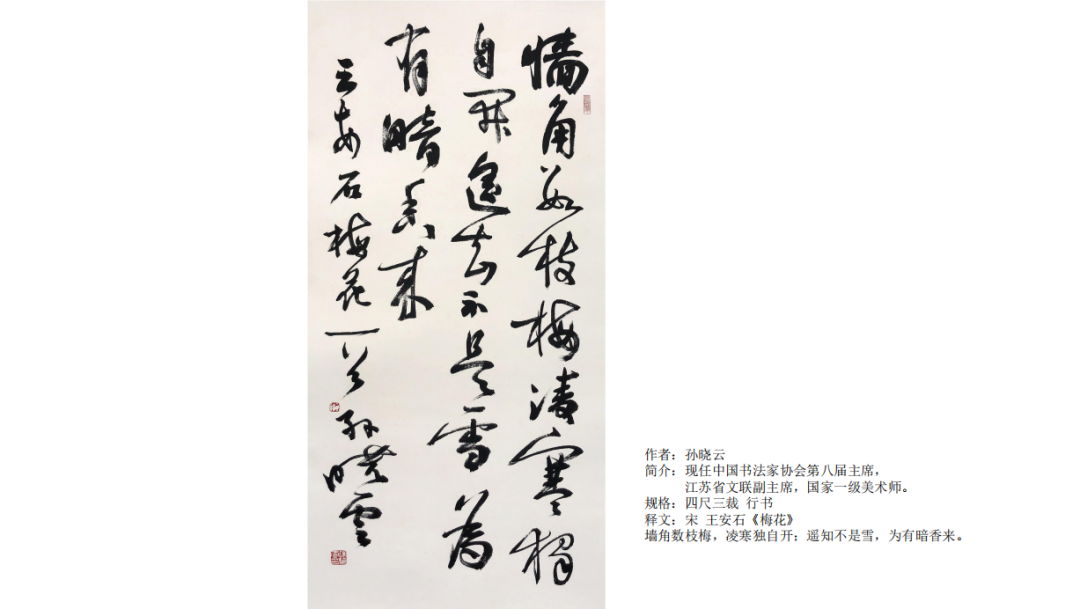 墻角数枝梅凌寒獨
自開遥知不是雪為
有暗香来
王安石梅花一首 孫曉雲
作者：孙晓云
简介：现任中国书法家协会第八届主席，
江苏省文联副主席，国家一级美术师。
规格：四尺三裁 行书
释文：宋 王安石《梅花》
墙角数枝梅，凌寒独自开；遥知不是雪，为有暗香来。